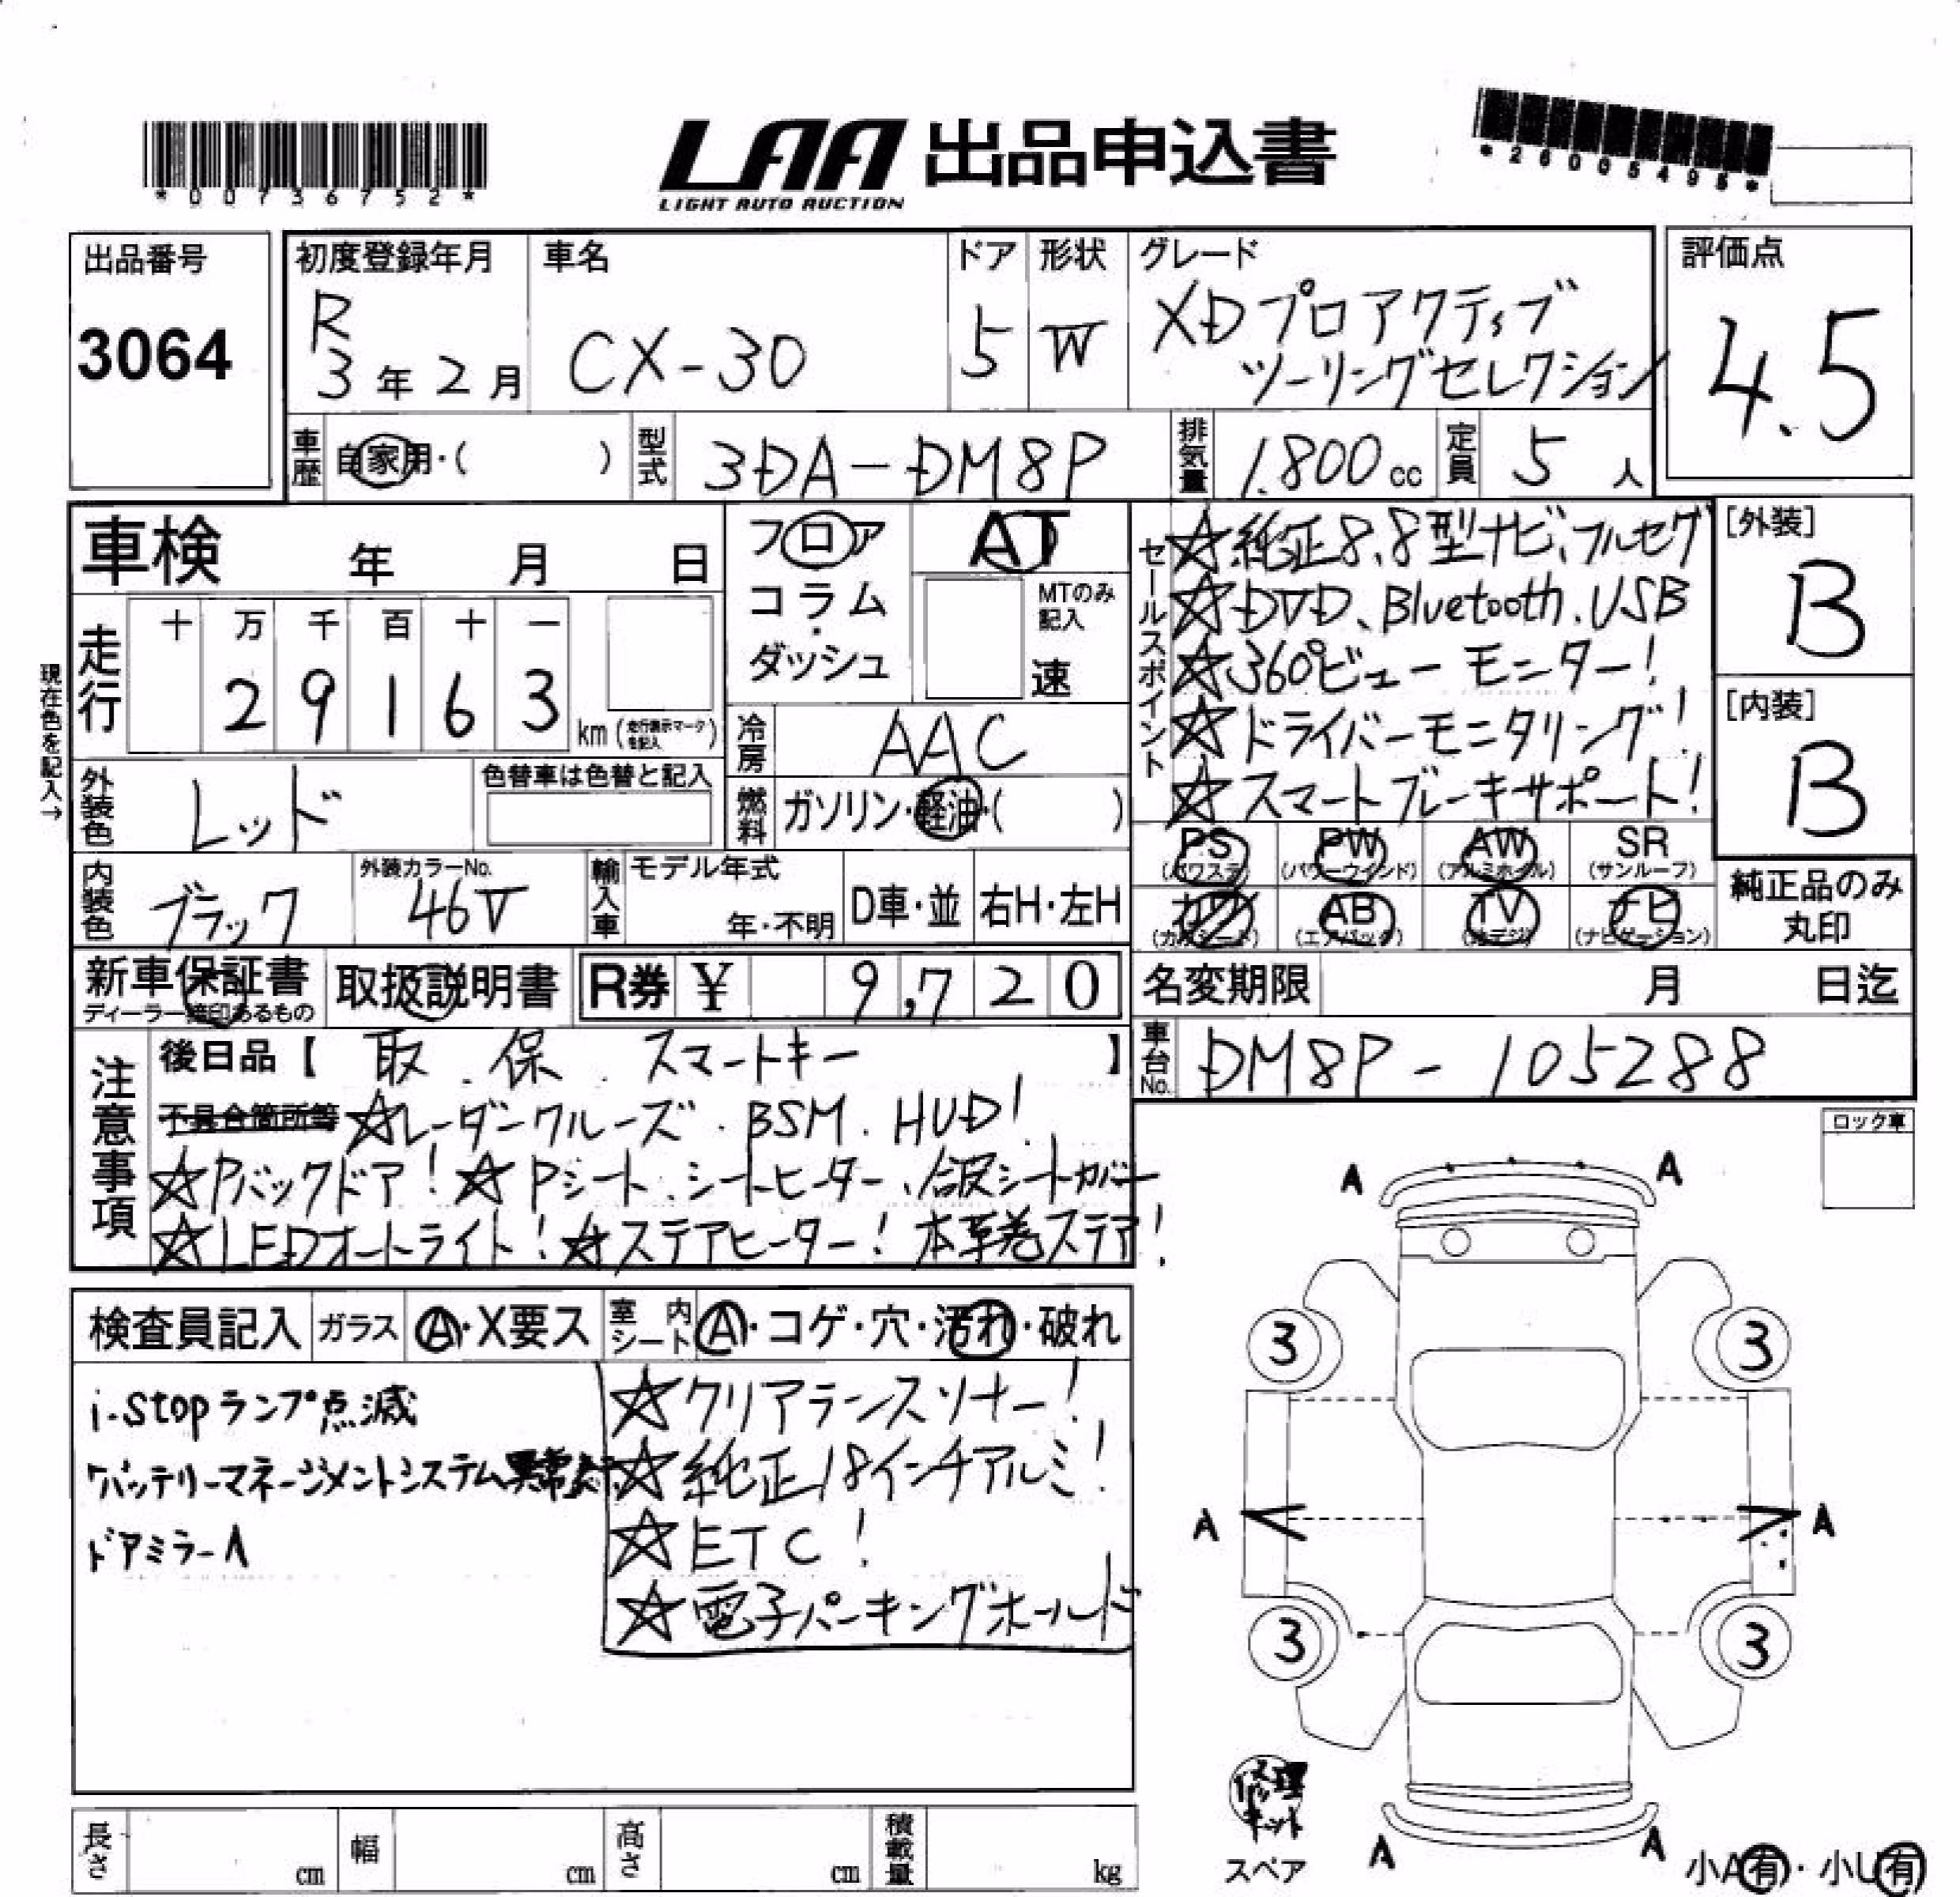 *00736752*
LAA 出品申込書
LIGHT AUTO AUCTION
*26005495*
出品番号
3064
初度登録年月
R
3年2月
車名
CX-30
ドア
5
形状
W
グレード
XDプロアクティブ
ツーリングセレクション
評価点
4.5
車歴
自家用・( )
型式
3DA-DM8P
排気量
1.800cc
定員
5人
車検 年 月 日
フロア
コラム・
ダッシュ
AT
MTのみ記入
速
セールスポイント
☆純正8.8型ナビ、フルセグ
☆DVD、Bluetooth、USB
☆360°ビューモニター!
☆ドライバーモニタリング!
☆スマートブレーキサポート!
[外装]
B
[内装]
B
現在色を記入→
走行
十 万 千 百 十 一
2 9 1 6 3
km (走行表示マークを記入)
冷房
AAC
外装色
レッド
色替車は色替と記入
燃料
ガソリン・軽油・( )
PS PW AW SR
(パワステ) (パワーウインド) (アルミホイル) (サンルーフ)
カワ AB TV ナビ
(カワシート) (エアバック) (地デジ) (ナビゲーション)
純正品のみ
丸印
内装色
ブラック
外装カラーNo.
46V
輸入車
モデル年式
年・不明
D車・並
右H・左H
新車保証書
ディーラー捺印あるもの
取扱説明書
R券 ¥ 9,720
名変期限 月 日迄
注意事項
後日品【 取. 保. スマートキー 】
車台No.
DM8P-105288
不具合箇所等 ☆レーダークルーズ. BSM. HUD!
☆Pバックドア! ☆Pシート、シートヒーター、合皮シートカバー
☆LEDオートライト! ☆ステアヒーター! 本革巻ステア!
ロック車
検査員記入
ガラス
A・X要ス
室内シート
A・コゲ・穴・汚れ・破れ
i-stopランプ点滅
バッテリーマネージメントシステム異常
ドアミラーA
☆クリアランスソナー!
☆純正18インチアルミ!
☆ETC!
☆電子パーキングホールド
A A
3 3
A A
3 3
A A
修理
キット
スペア
小A有・小U有
長さ cm
幅 cm
高さ cm
積載量 kg